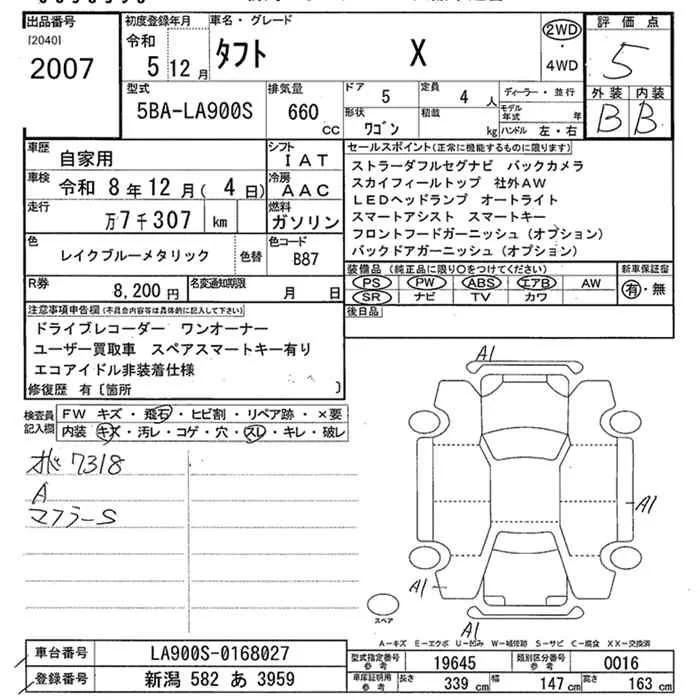 出品番号 [2040] 2007
初度登録年月 令和 5年 12月
車名・グレード タフト X
2WD ・ 4WD
評価点 5
外装 B 内装 B
型式 5BA-LA900S
排気量 660 CC
ドア 5 定員 4 人
形状 ワゴン 積載 kg
ディーラー・並行
モデル年式 年
ハンドル 左・右
車歴 自家用
シフト IAT
車検 令和 8年 12月 ( 4日)
冷房 AAC
走行 万7千307 km
燃料 ガソリン
色 レイクブルーメタリック 色替
色コード B87
R券 8,200円 名変通知期限 月 日
セールスポイント(正常に機能するものに限ります)
ストラーダフルセグナビ バックカメラ
スカイフィールトップ 社外AW
LEDヘッドランプ オートライト
スマートアシスト スマートキー
フロントフードガーニッシュ(オプション)
バックドアガーニッシュ(オプション)
装備品(純正品に限り○をつけてください) 新車保証書
PS PW ABS エアB AW 有・無
SR ナビ TV カワ
後日品
注意事項申告欄(不具合内容等は具体的に記入して下さい)
ドライブレコーダー ワンオーナー
ユーザー買取車 スペアスマートキー有り
エコアイドル非装着仕様
修復歴 有〔箇所 〕
検査員記入欄
FW キズ・飛石・ヒビ割・リペア跡・×要
内装 キズ・汚レ・コゲ・穴・スレ・キレ・破レ
7318
A
マフラーS
A1
A1
A1
A1
スペア
A―キズ E―エクボ U―凹み W―補修跡 S―サビ C―腐食 XX―交換済
車台番号 LA900S-0168027
登録番号 新潟 582 あ 3959
型式指定番号 参考 19645 類別区分番号 参考 0016
車庫証明用 参考 長さ 339 cm 幅 147 cm 高さ 163 cm